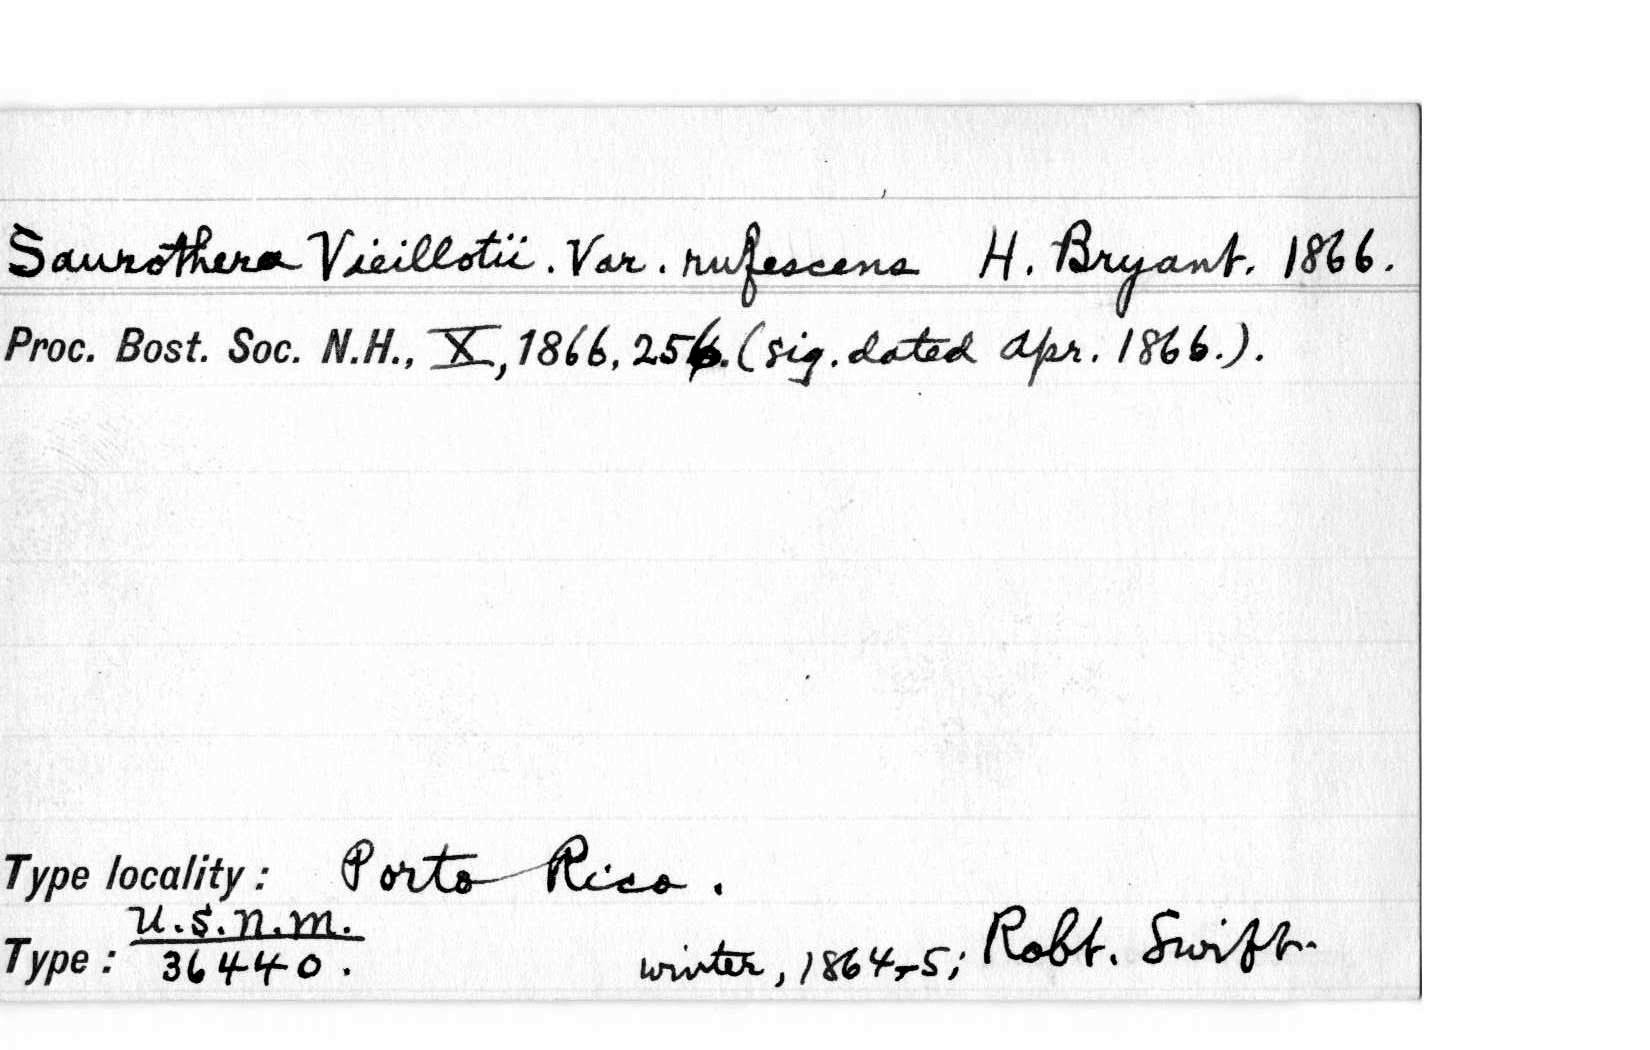 Saurothera Vieillotii. Var. rufescens H. Bryant. 1866.
Proc. Bost. Soc. N.H., X, 1866, 256. (sig. dated Apr. 1866.).
Type locality: Porto Rico.
U.S.N.M.
Type: 36440. winter, 1864-5; Robt. Swift.